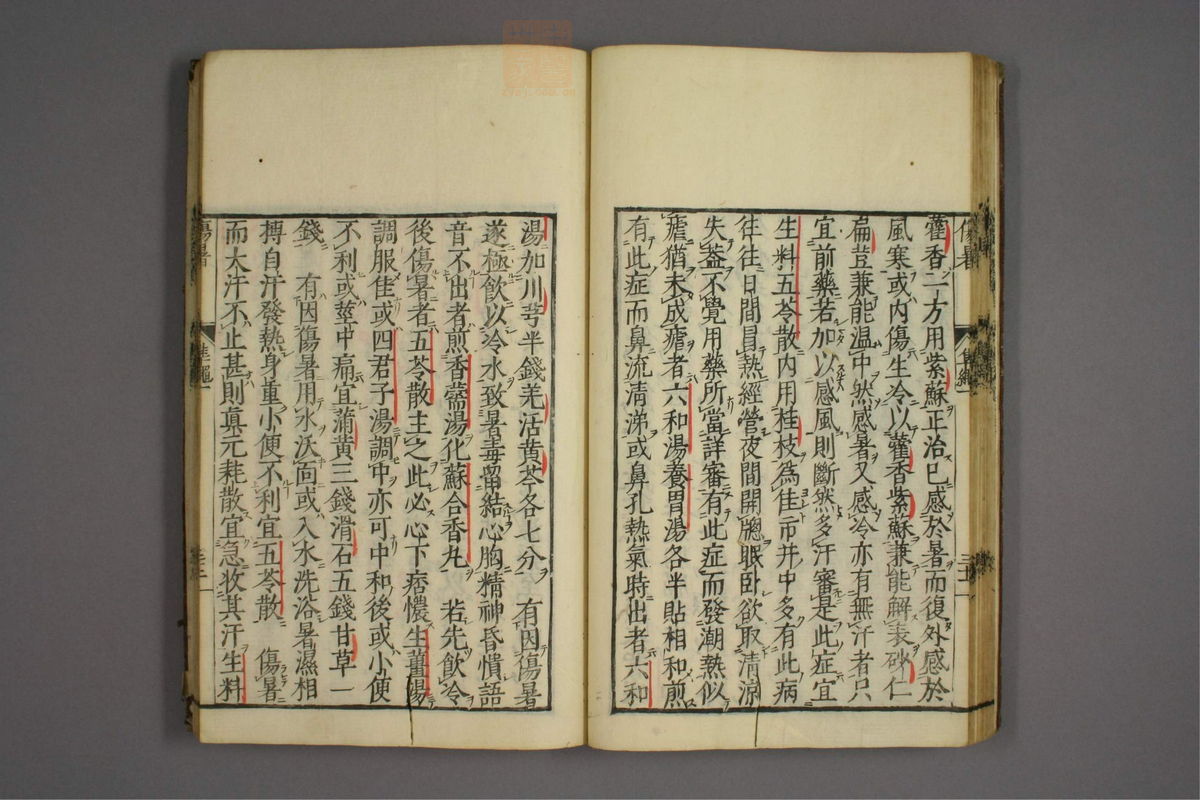 藿香二方用紫蘇正治已感於暑而復外感於
風寒或内傷生冷以藿香紫蘇兼能解表砂仁
扁豆兼能温中然感暑又感冷亦有無汗者只
宜前藥若加以感風則斷然多汗審是此症宜
生料五苓散内用桂枝為佳市井中多有此病
往往日間冒熱經營夜間開牕眠卧欲取清涼
失葢不覺用藥所當詳審有此症而發潮熱似
瘧猶未成瘧者六和湯養胃湯各半貼相和煎
有此症而鼻流清涕或鼻孔熱氣時出者六和
湯加川芎半錢羌活黄芩各七分 有因傷暑
遂極飲以冷水致暑毒留結心胸精神昏憒語
音不出者煎香薷湯化蘇合香丸 若先飲冷
後傷暑者五苓散主之此必心下痞懷生薑湯
調服佳或四君子湯調中亦可中和後或小便
不利或莖中痛宜蒲黄三錢滑石五錢甘草一
錢 有因傷暑用水沃面或入水洗浴暑濕相
搏自汗發熱身重小便不利宜五苓散 傷暑
而大汗不止甚則眞元耗散宜急收其汗生料
傷暑